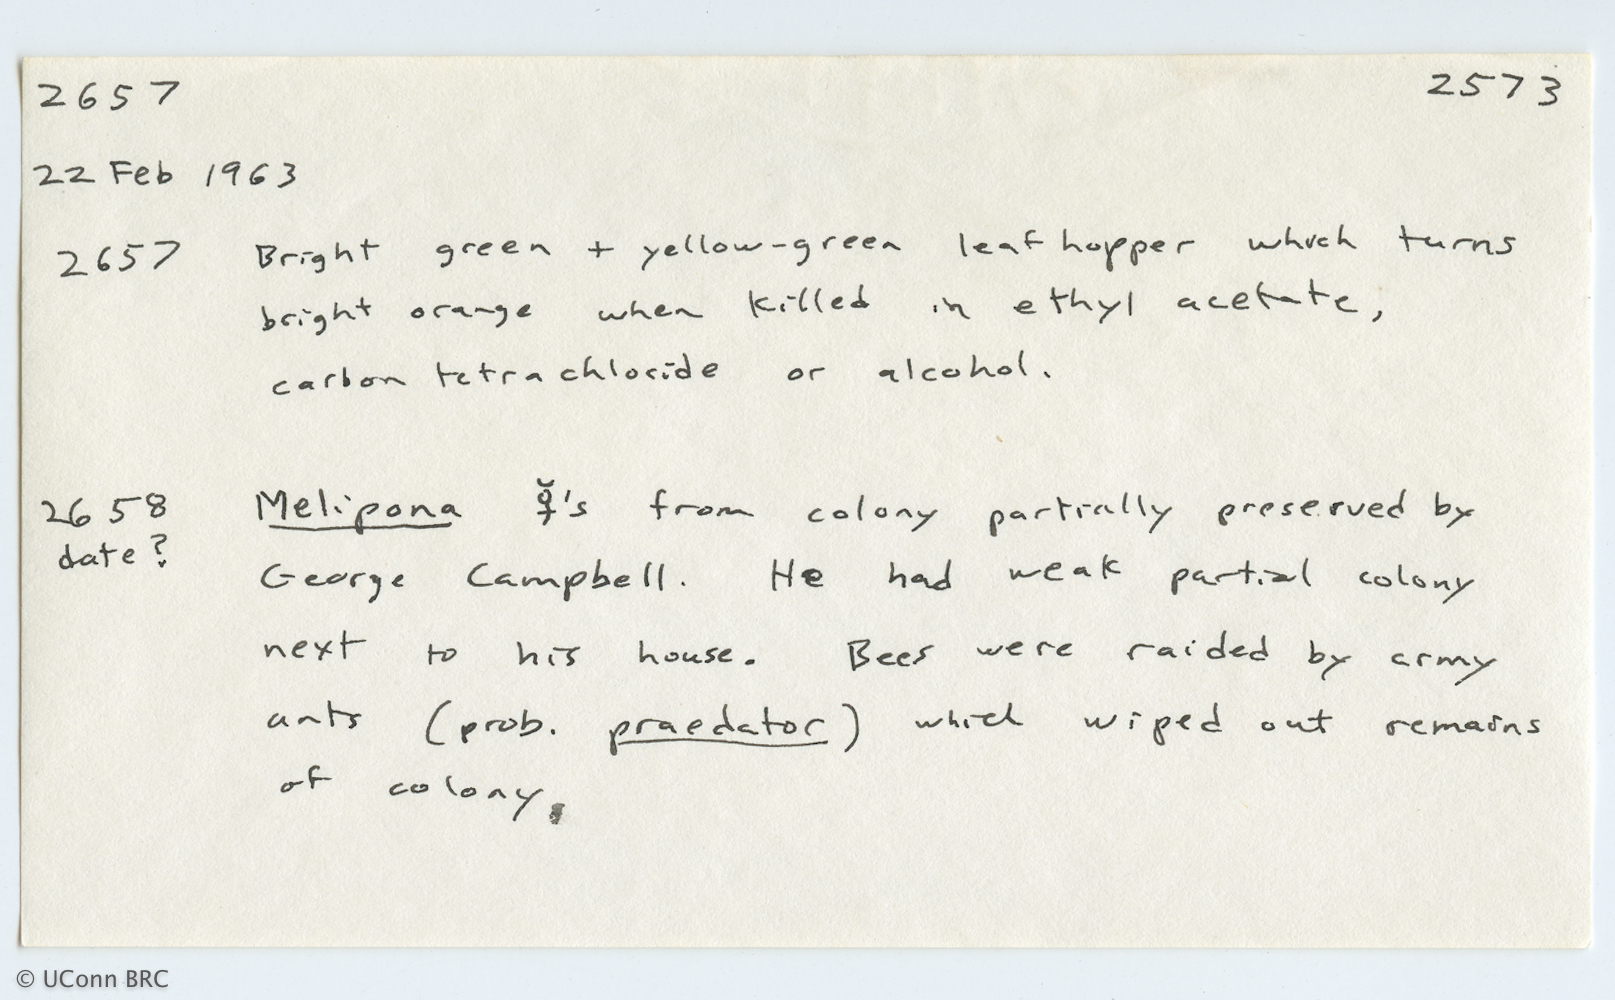 2657 2573
22 Feb 1963
2657 Bright green + yellow-green leafhopper which turns
bright orange when killed in ethyl acetate,
carbon tetrachloride or alcohol.
2658 Melipona ☿'s from colony partially preserved by
date? George Campbell. He had weak partial colony
next to his house. Bees were raided by army
ants (prob. praedator) which wiped out remains
of colony.
© UConn BRC